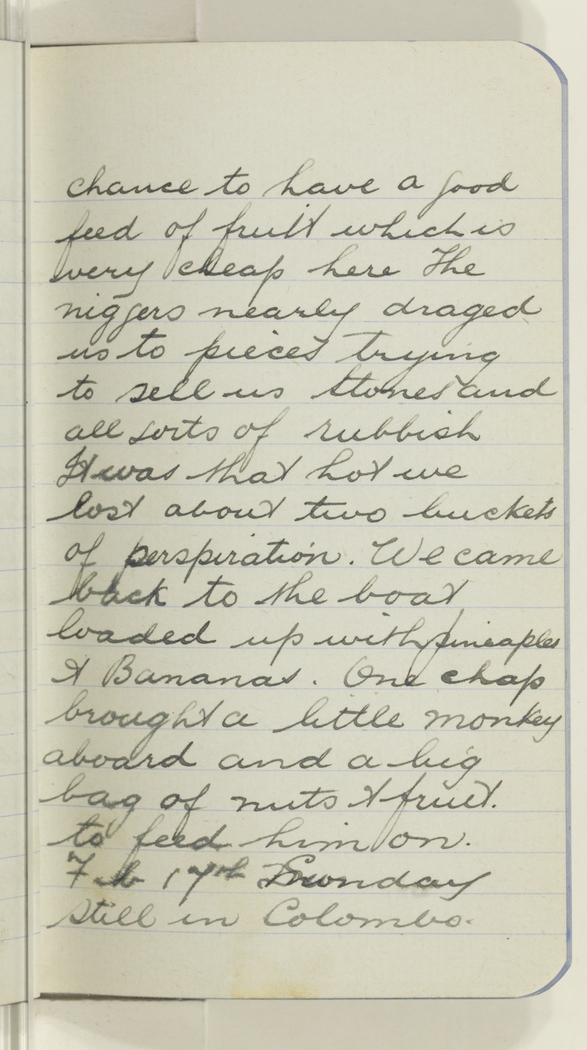 chance to have a good
feed of fruit which is
very cheap here The
niggers nearly draged
us to pieces trying
to sell us stones and
all sorts of rubbish
It was that hot we
lost about two buckets
of perspiration. We came
back to the boat
loaded up with pineaples
& Bananas. One chap
brought a little monkey
aboard and a big
bag of nuts & fruit.
to feed him on.
Feb 17th Sunday
still in Colombo.